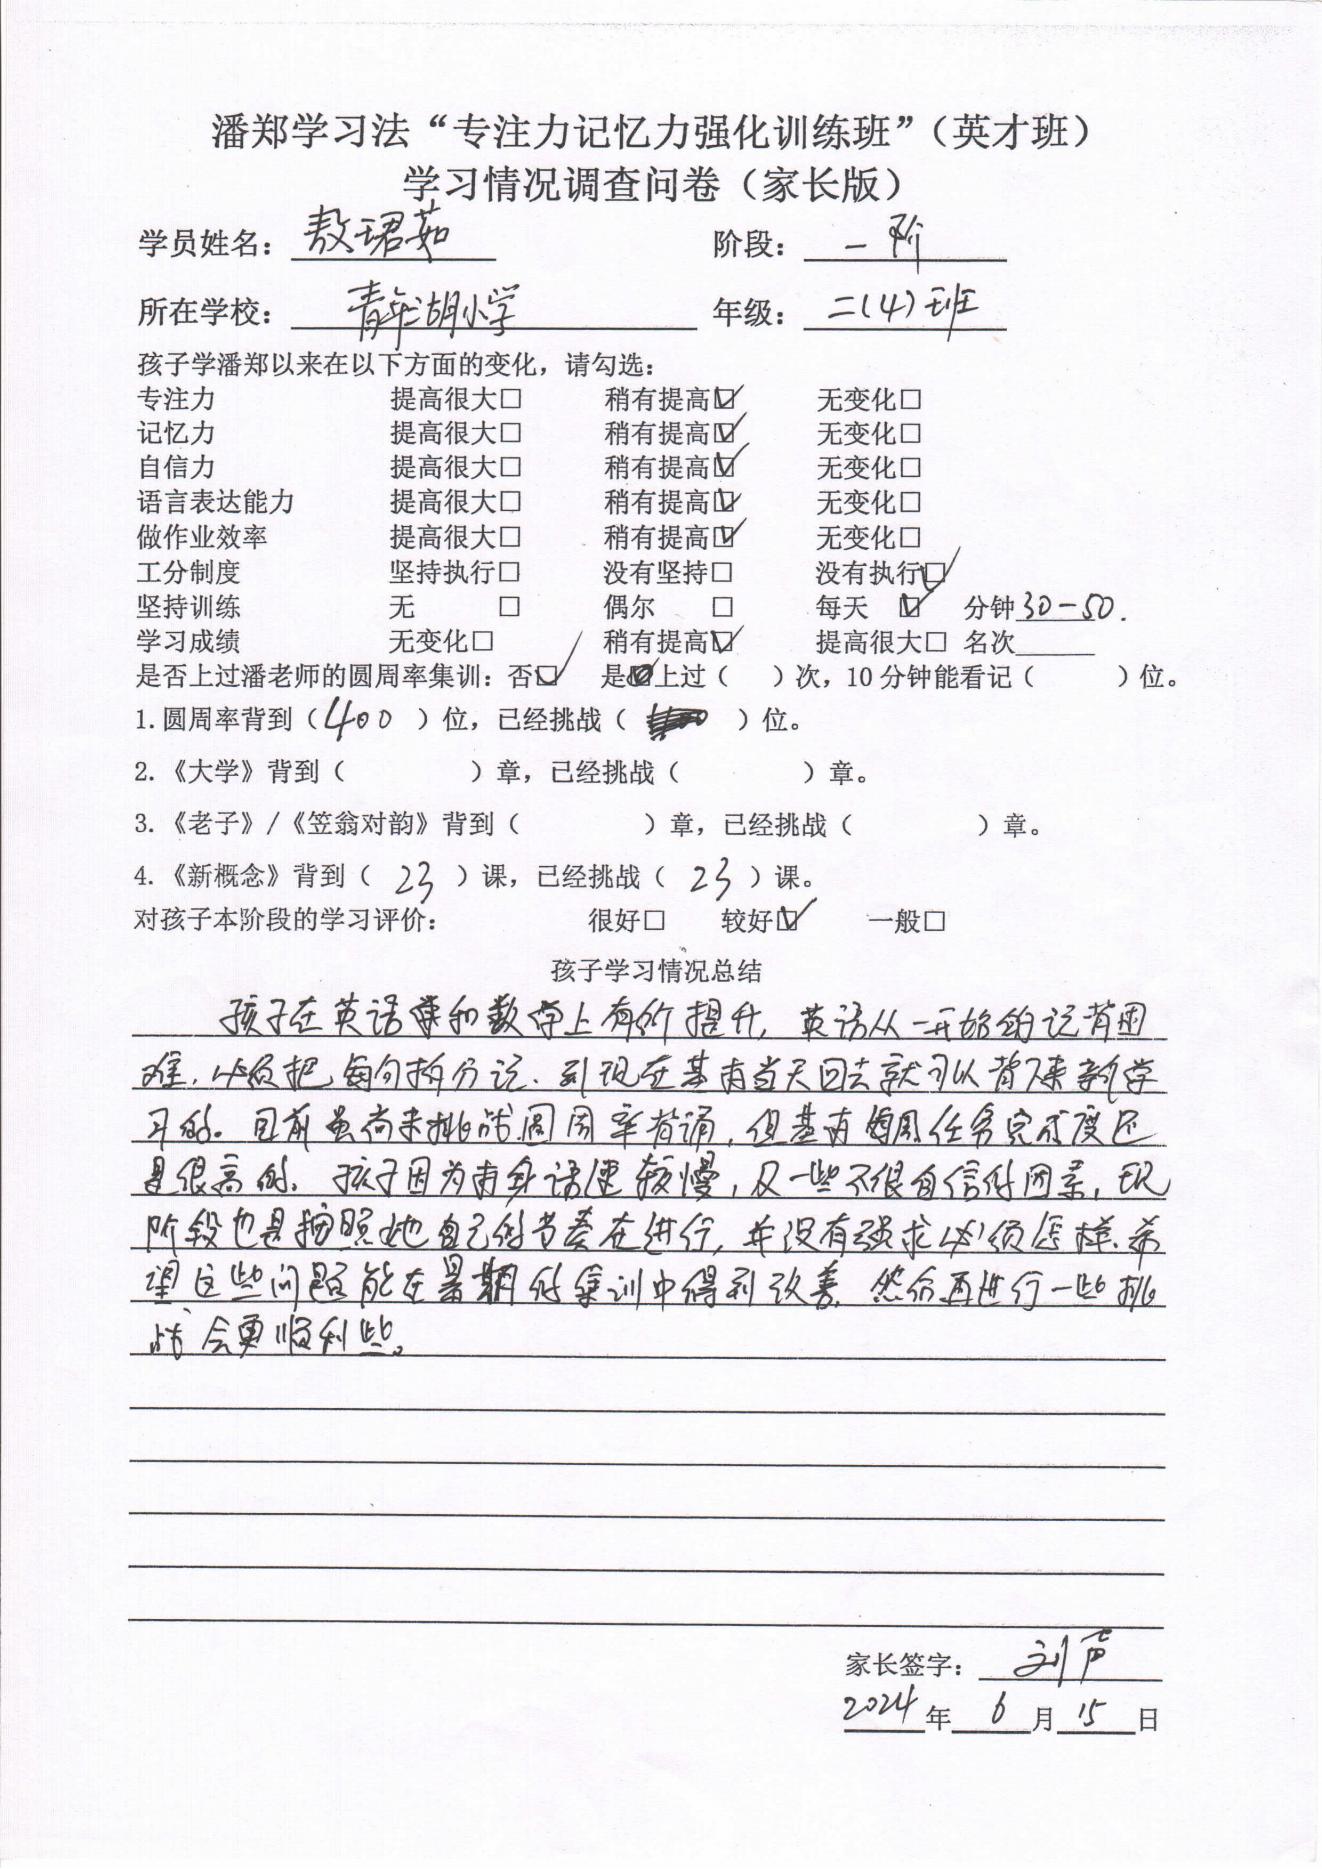 潘郑学习法“专注力记忆力强化训练班”（英才班）
学习情况调查问卷（家长版）
学员姓名：敖珺茹 阶段：一阶
所在学校：青年湖小学 年级：二（4）班
孩子学潘郑以来在以下方面的变化，请勾选：
专注力 提高很大□ 稍有提高☑ 无变化□
记忆力 提高很大□ 稍有提高☑ 无变化□
自信力 提高很大□ 稍有提高☑ 无变化□
语言表达能力 提高很大□ 稍有提高☑ 无变化□
做作业效率 提高很大□ 稍有提高☑ 无变化□
工分制度 坚持执行□ 没有坚持□ 没有执行☑
坚持训练 无 □ 偶尔 □ 每天 ☑ 分钟30-50.
学习成绩 无变化□ 稍有提高☑ 提高很大□ 名次
是否上过潘老师的圆周率集训：否☑ 是□上过（ ）次，10分钟能看记（ ）位。
1.圆周率背到（400）位，已经挑战（ ）位。
2.《大学》背到（ ）章，已经挑战（ ）章。
3.《老子》/《笠翁对韵》背到（ ）章，已经挑战（ ）章。
4.《新概念》背到（23）课，已经挑战（23）课。
对孩子本阶段的学习评价： 很好□ 较好☑ 一般□
孩子学习情况总结
孩子在英语和数学上有所提升，英语从一开始的说背困
难，必须把每句拆分说，到现在基本当天回去就可以背下来新学
习的。目前虽尚未挑战圆周率背诵，但基本每周任务完成度还
是很高的。孩子因为本身语速较慢，及一些不很自信的因素，现
阶段也是按照她自己的节奏在进行，并没有强求必须怎样。希
望这些问题能在暑期的集训中得到改善，然后再进行一些挑
战会更顺利些。
家长签字：刘
2024年6月15日